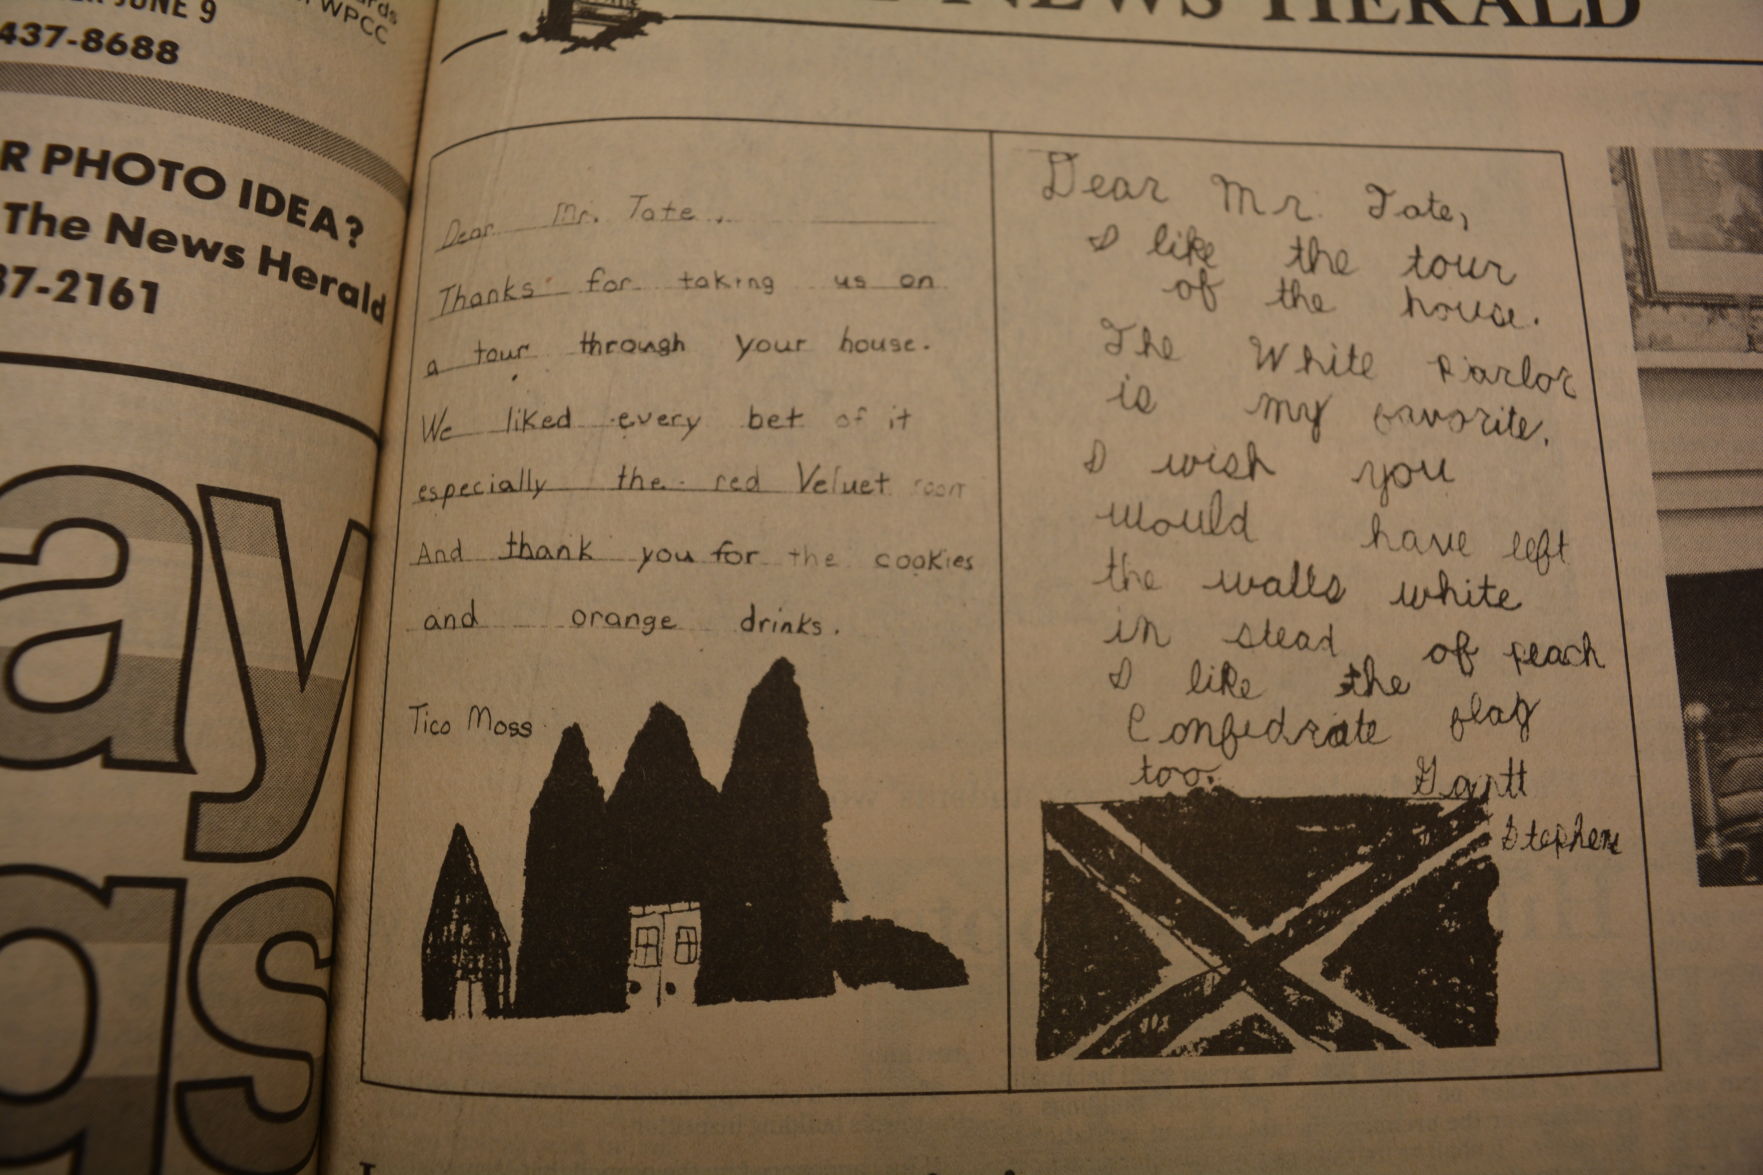 JUNE 9
WPCC
437-8688
R PHOTO IDEA?
The News Herald
37-2161
ay
gs
NEWS HERALD
Dear Mr. Tate,
Thanks for taking us on
a tour through your house.
We liked every bet of it
especially the red Veluet room
And thank you for the cookies
and orange drinks.
Tico Moss
Dear Mr. Tate,
I like the tour
of the house.
The White Parlor
is my favorite.
I wish you
would have left
the walls white
in stead of peach
I like the
Confedrate flag
too.
Gantt
Stephen